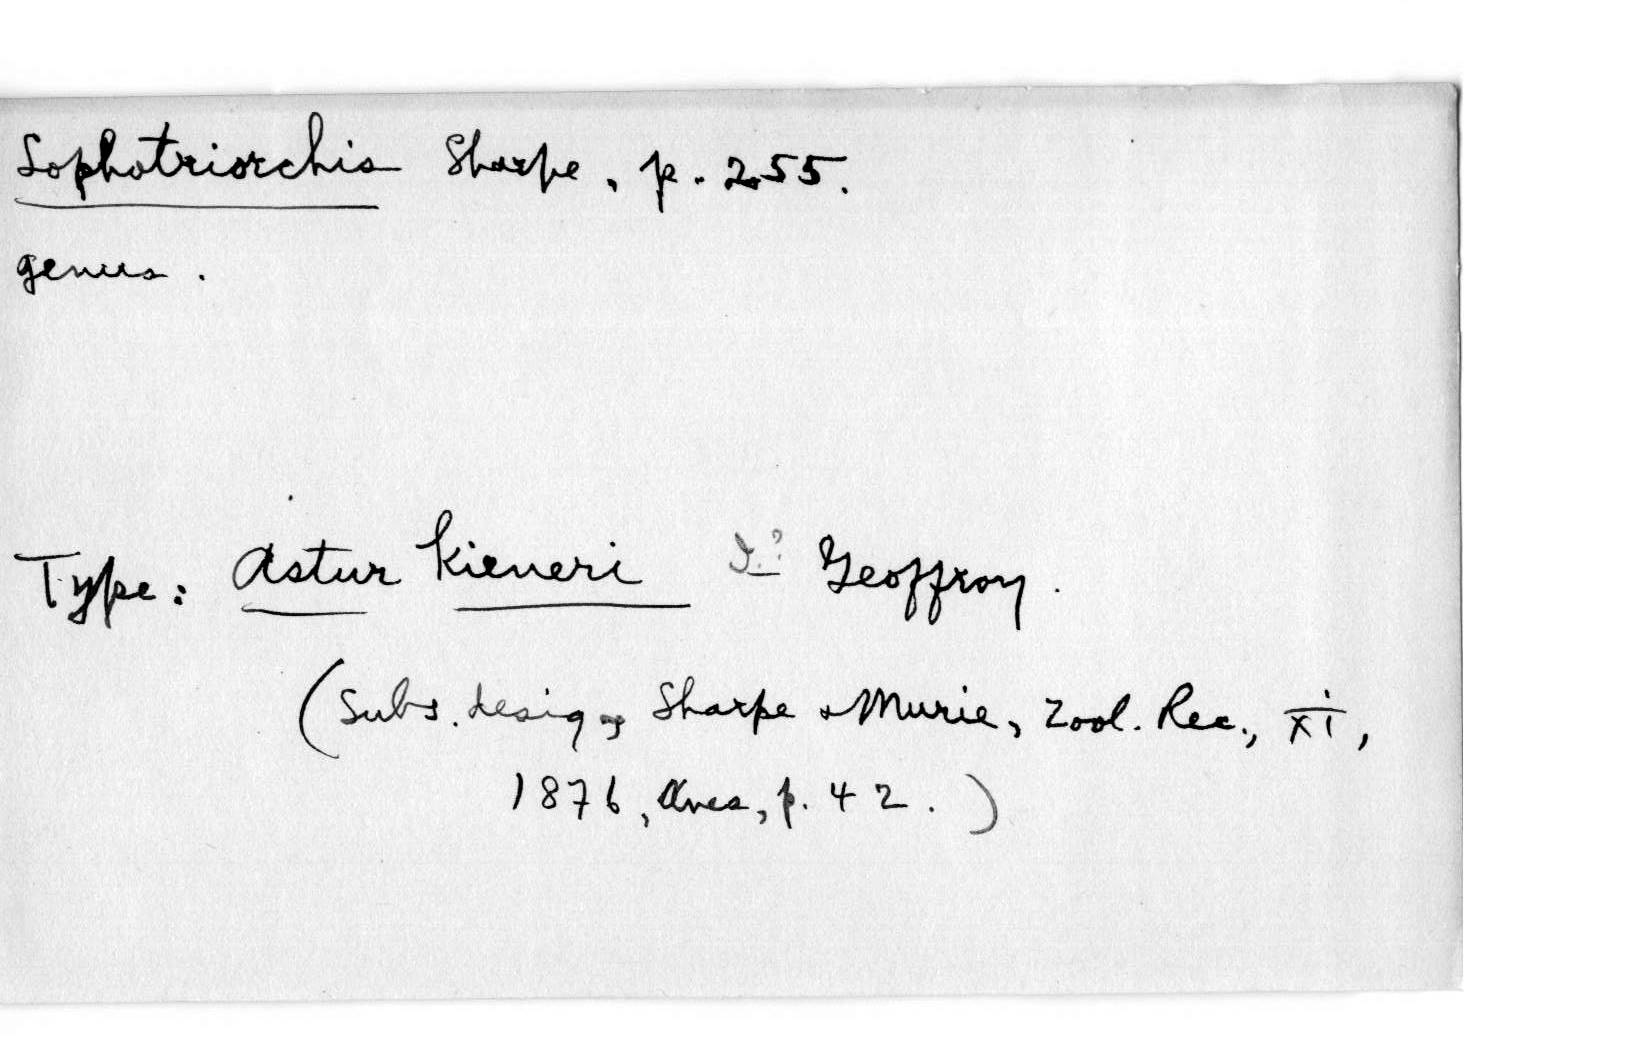 Lophotriorchis Sharpe, p. 255.
genus.
Type: Astur Kieneri I.? Geoffroy.
(Subs. desig., Sharpe & Murie, Zool. Rec., XI,
1876, Aves, p. 42.)